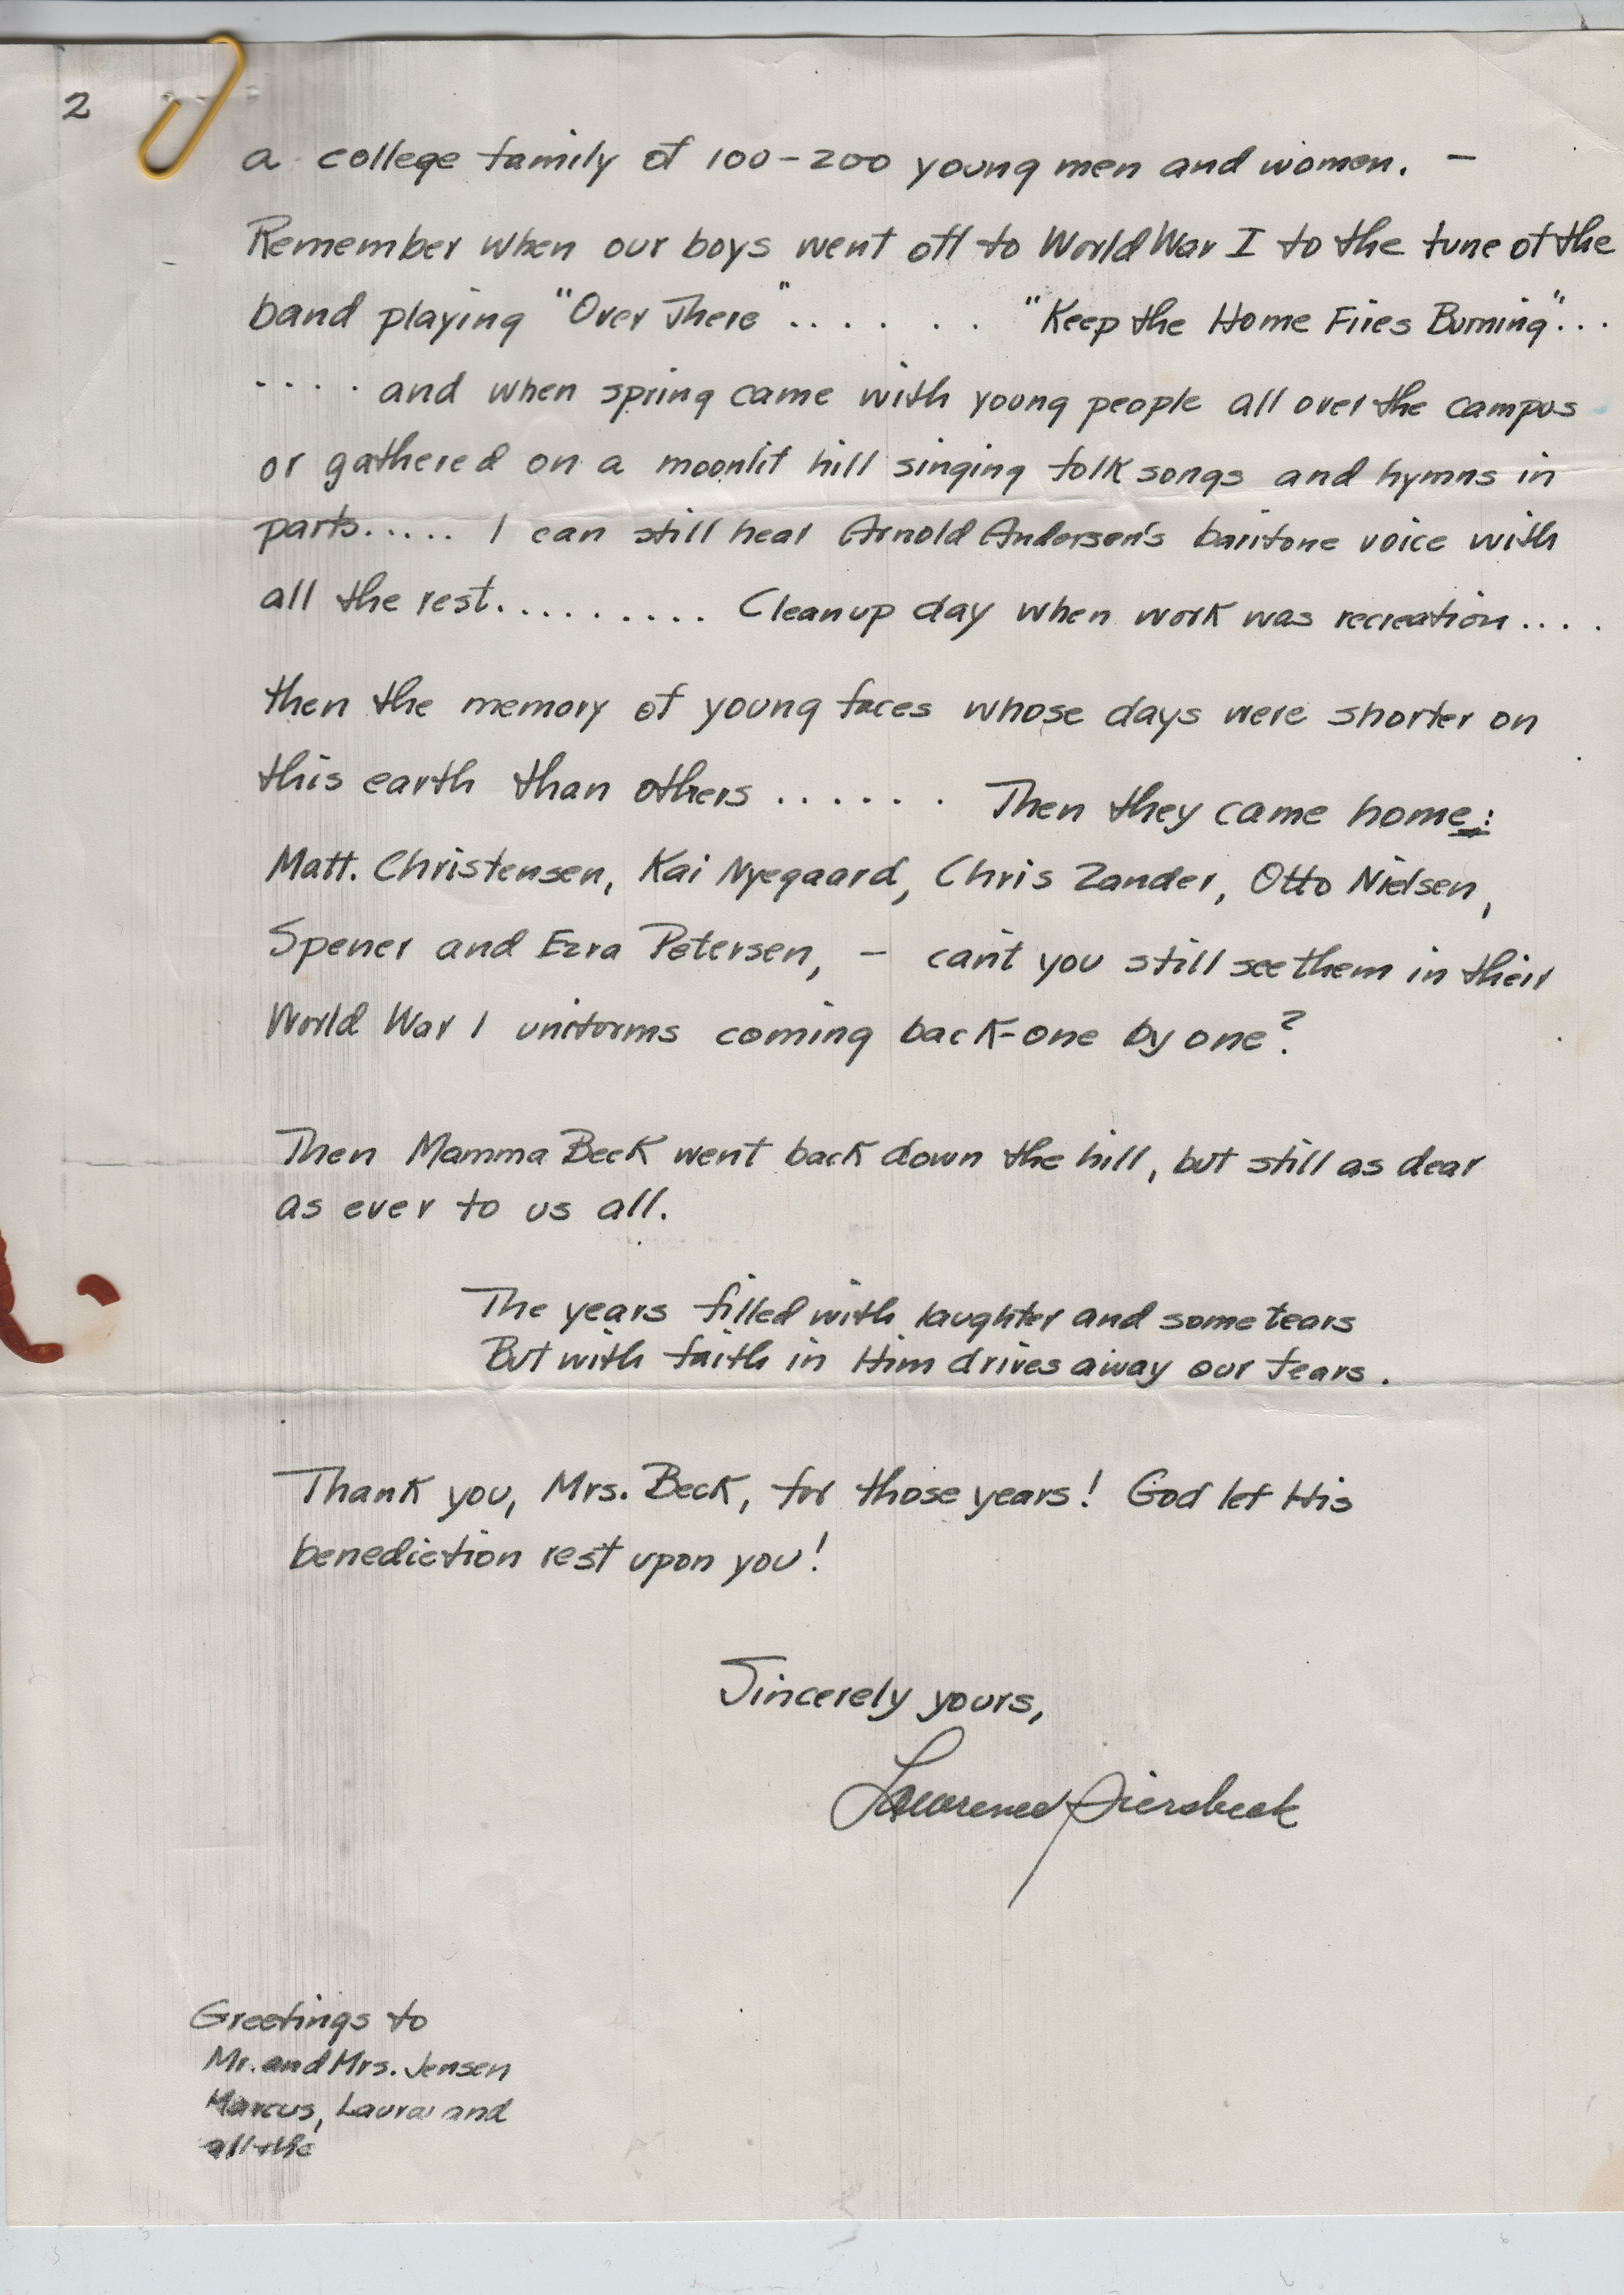 2
a college family of 100-200 young men and women. —
Remember when our boys went off to World War I to the tune of the
band playing "Over There". . . . . . "Keep the Home Fires Burning". . .
. . . . and when spring came with young people all over the campus
or gathered on a moonlit hill singing folk songs and hymns in
parts..... I can still hear Arnold Andersen's baritone voice with
all the rest.......... Cleanup day when work was recreation....
then the memory of young faces whose days were shorter on
this earth than others ...... Then they came home:
Matt. Christensen, Kai Nyegaard, Chris Zander, Otto Nielsen,
Spener and Ezra Petersen, — can't you still see them in their
World War I uniforms coming back-one by one?
Then Mamma Beck went back down the hill, but still as dear
as ever to us all.
The years filled with laughter and some tears
But with faith in Him drives away our fears.
Thank you, Mrs. Beck, for those years! God let His
benediction rest upon you!
Sincerely yours,
Lawrence Siersbeck
Greetings to
Mr. and Mrs. Jensen
Marcus, Laura and
all the